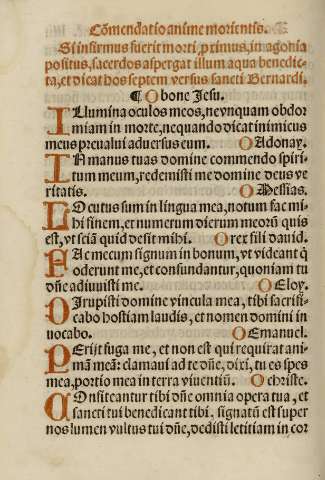 Cõmendatio anime morientis.
Si infirmus fuerit morti proximus, in agonia
positus, sacerdos aspergat illum aqua benedic-
ta, et dicat hos septem versus sancti Bernardi.
¶ O bone Jesu.
Illumina oculos meos, ne vnquam obdor
miam in morte, nequando dicat inimicus
meus preualui aduersus eum. O Adonay.
In manus tuas domine commendo spiri-
tum meum, redemisti me domine deus ve
ritatis. O Messias.
Locutus sum in lingua mea, notum fac mi-
hi finem, et numerum dierum meorũ quis
est, vt sciã quid desit mihi. O rex fili dauid.
Fac mecum signum in bonum, vt videant q̃
oderunt me, et confundantur, quoniam tu
dñe adiuuisti me. O Eloy.
Dirupisti domine vincula mea, tibi sacrifi-
cabo hostiam laudis, et nomen domini in
uocabo. O Emanuel.
Perijt fuga me, et non est qui requirat ani-
mã meã: clamaui ad te dñe, dixi, tu es spes
mea, portio mea in terra viuentiũ. O christe.
Confiteantur tibi dñe omnia opera tua, et
sancti tui benedicant tibi, signatũ est super
nos lumen vultus tui dñe, dedisti letitiam in cor